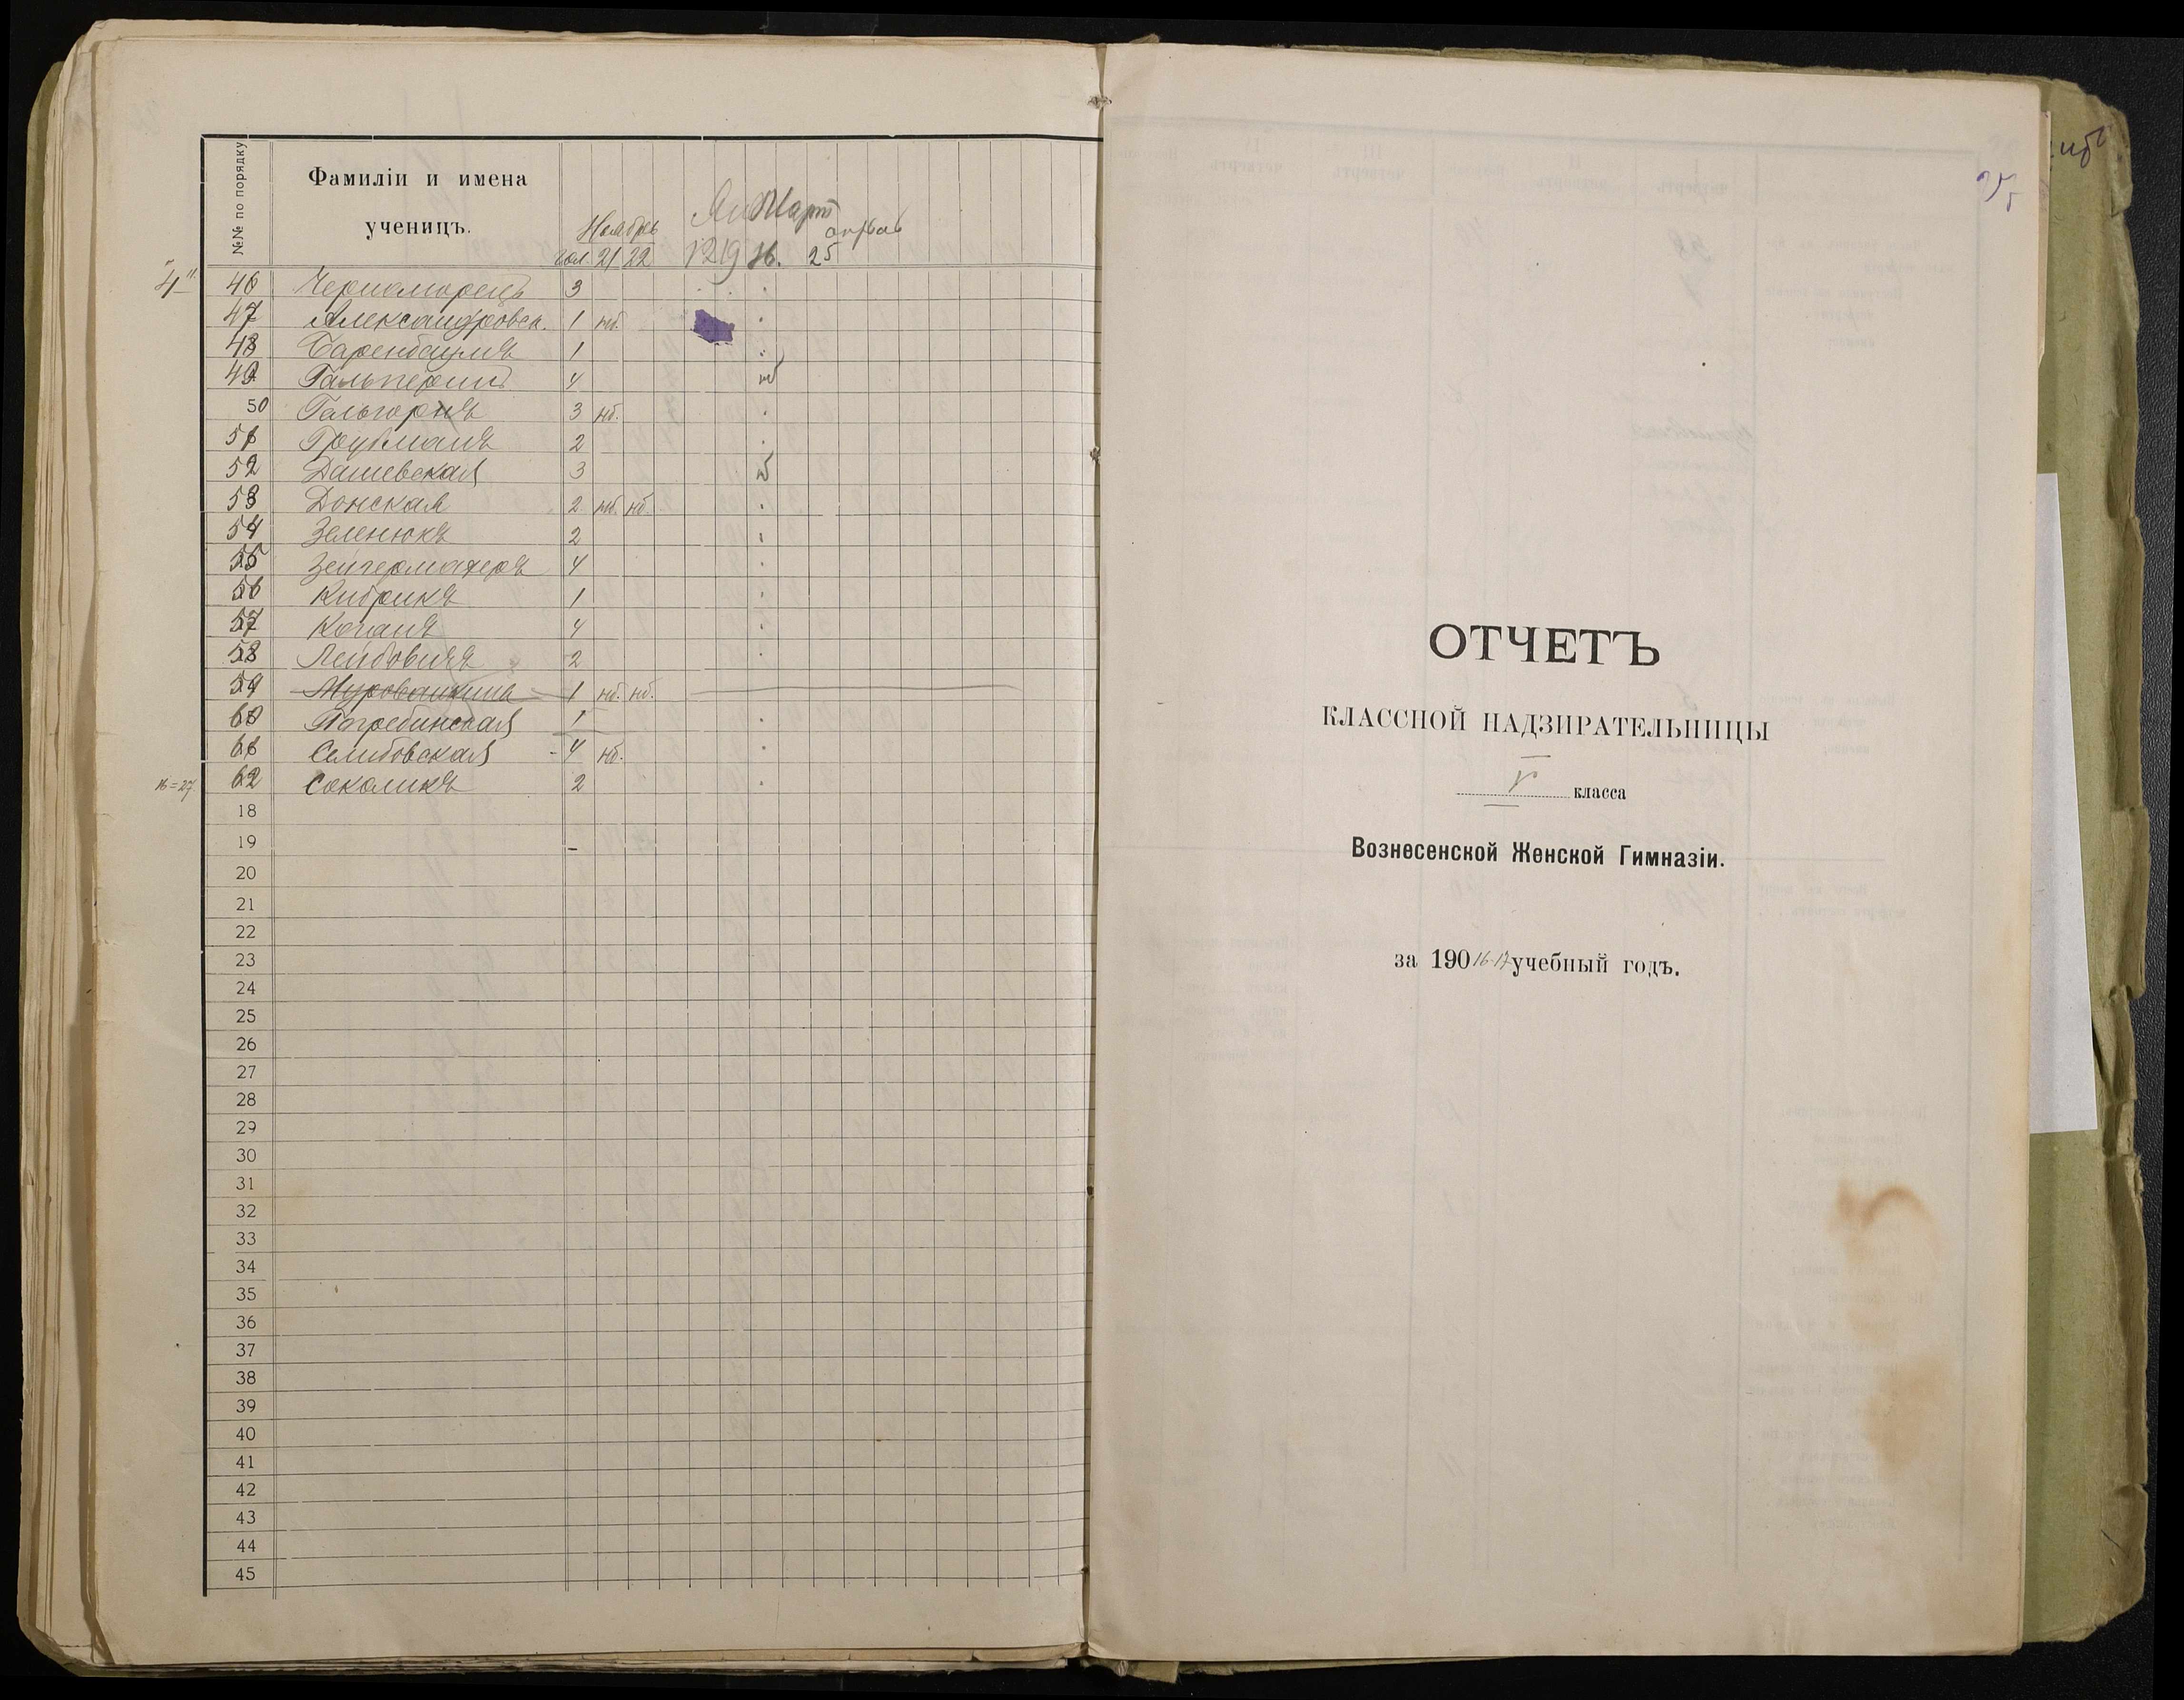 №№ по порядку
Фамиліи и имена
ученицъ.
Ноябрь Ян Март апрѣль
21 22 12 19 16. 25
"4" 46 Черноморецъ 3
47 Александровск. 1 нб.
48 Баренбаумъ 1
49 Гальперинъ 4 нб
50 Гальгорнъ 3 нб.
51 Грубманъ 2
52 Дашевская 3 нб
53 Донская 2 нб. нб.
54 Зеленюкъ 2
55 Зейгермахеръ 4
56 Кибрикъ 1
57 Коганъ 4
58 Лейбовичъ 2
59 Мурованкина 1 нб. нб.
60 Погребинская 1
61 Селибовская 4 нб.
16=27 62 Соколикъ 2
18
19
20
21
22
23
24
25
26
27
28
29
30
31
32
33
34
35
36
37
38
39
40
41
42
43
44
45
ОТЧЕТЪ
КЛАССНОЙ НАДЗИРАТЕЛЬНИЦЫ
V класса
Вознесенской Женской Гимназіи.
за 190 16-17 учебный годъ.